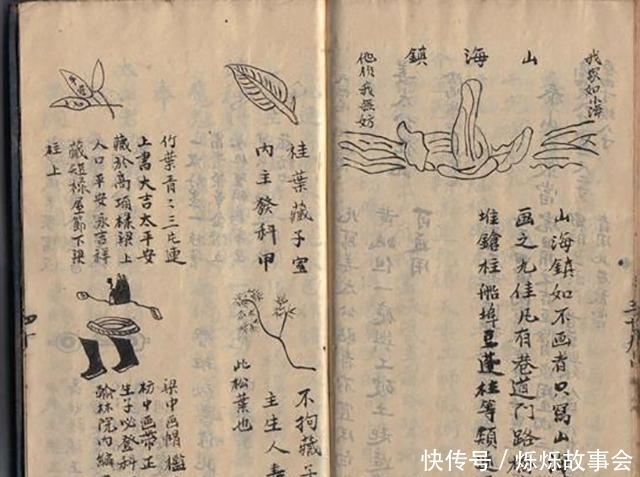 我家如山海
山海鎮
他作我無妨
山海鎮如不画者只寫山
画之尤佳凡有巷道門路橋
堆鎗柱船埠豆蓬柱等類
桂葉藏子室
内主發科甲
竹葉青〻三片連
上書大吉太平安
藏於高頂樑梁上
人口平安永吉祥
柱上
不拘藏子
主生人壽
此松葉也
梁中画帽檻
枋中画帶正
生子必登科
翰林院内編
四十
快传号／烁烁故事会